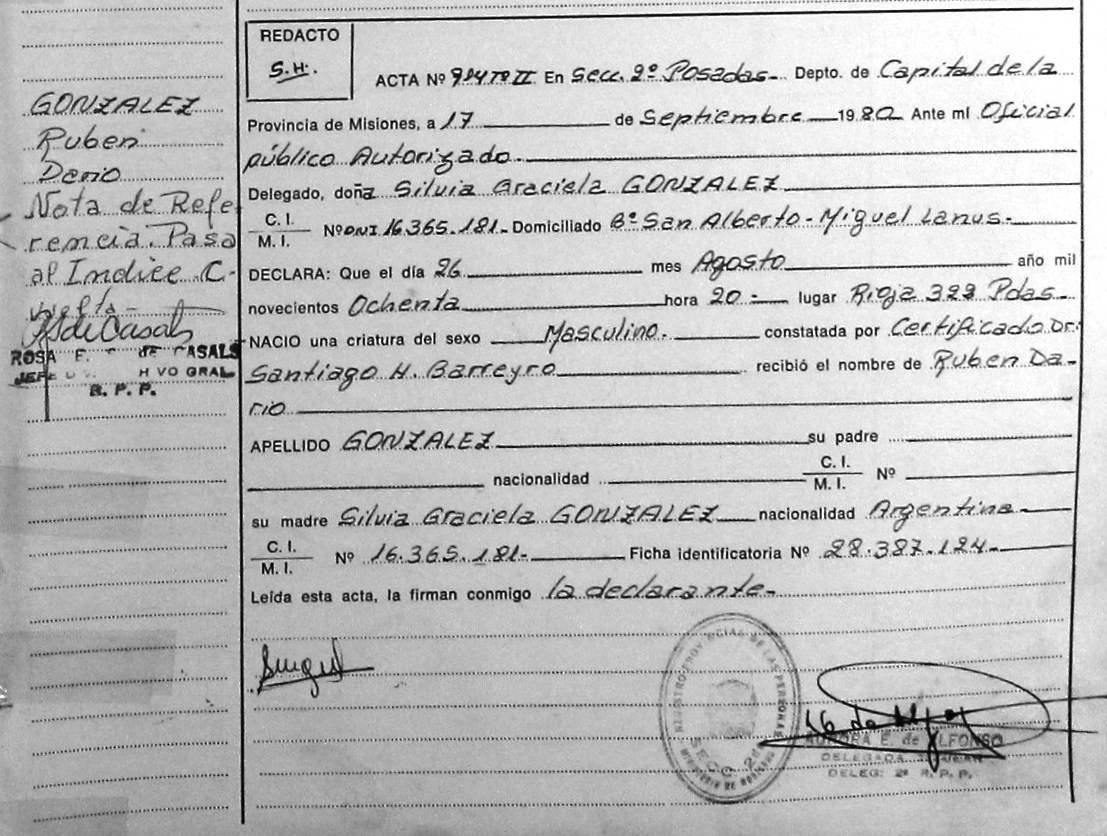 GONZALEZ
Ruben
Dario
Nota de Refe
rencia. Pasa
al Indice C-
ROSA E. DE CASALS
JEFE VO GRAL
R. P. P.
REDACTO
S.H.
ACTA Nº 984 Tº II En Secc. 2º Posadas- Depto. de Capital de la
Provincia de Misiones, a 17 de Septiembre 1980 Ante mí Oficial
público Autorizado
Delegado, doña Silvia Graciela GONZALEZ
C. I.
M. I. Nº DNI 16.365.181- Domiciliado Bº San Alberto - Miguel Lanus-
DECLARA: Que el día 26 mes Agosto año mil
novecientos Ochenta hora 20- lugar Rioja 322 Pdas-
NACIO una criatura del sexo Masculino- constatada por Certificado Dr.
Santiago H. Barreyro recibió el nombre de Ruben Da-
rio
APELLIDO GONZALEZ su padre
nacionalidad C. I.
M. I. Nº
su madre Silvia Graciela GONZALEZ nacionalidad Argentina-
C. I.
M. I. Nº 16.365.181- Ficha identificatoria Nº 28.387.124-
Leída esta acta, la firman conmigo la declarante-
REGISTRO PROVINCIAL DE LAS PERSONAS
SECC 2da
MINISTERIO DE
AURORA E. de ALFONSO
DELEGADA
DELEG: 2ª R. P. P.